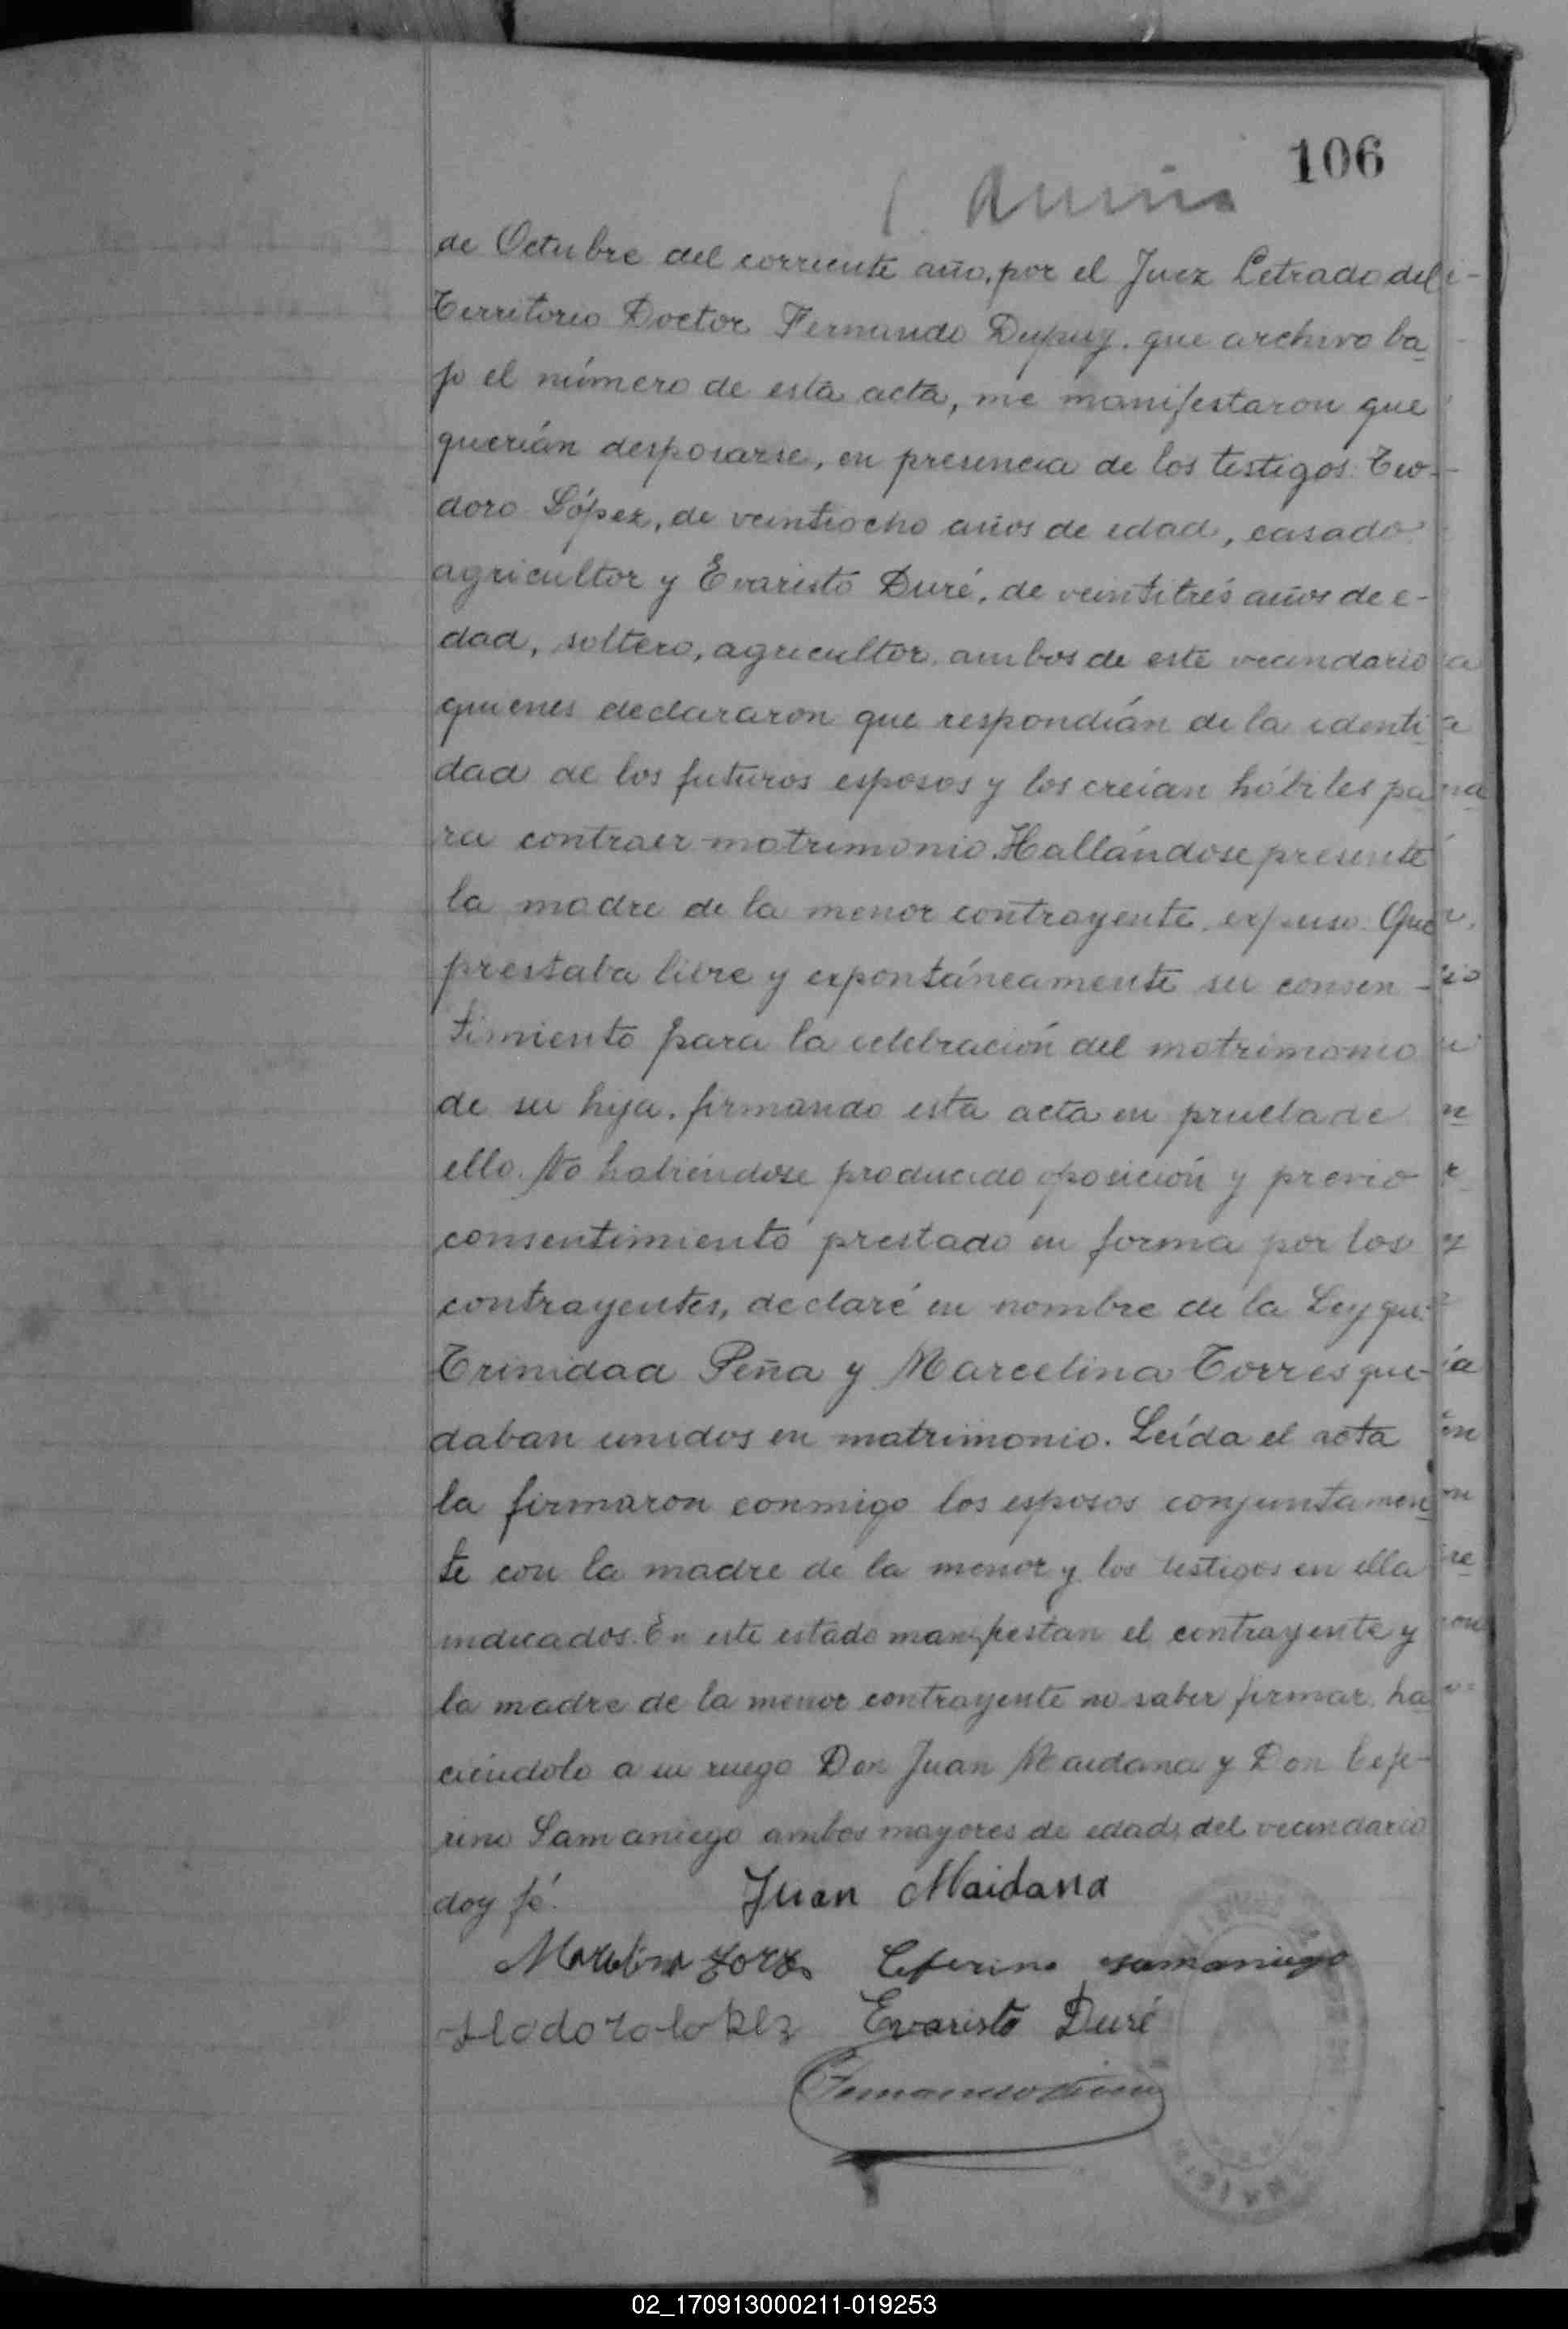 106
de Octubre del corriente año, por el Juez Letrado del
Territorio Doctor Fernando Dupuy. que archivo ba
jo el número de esta acta, me manifestaron que
querían desposarse, en presencia de los testigos. Teo-
doro López, de veintiocho años de edad, casado
agricultor y Evaristo Duré, de veintitrés años de e-
dad, soltero, agricultor, ambos de este vecindario
quienes declararon que respondían de la identi
dad de los futuros esposos y los creían hábiles pa
ra contraer matrimonio. Hallándose presente
la madre de la menor contrayente, expuso. Que
prestaba libre y expontáneamente su consen-
timiento para la celebración del matrimonio
de su hija, firmando esta acta en prueba de
ello. No habiéndose producido oposición y previo
consentimiento prestado en forma por los
contrayentes, declaré en nombre de la Ley que
Trinidad Peña y Marcelina Torres que-
daban unidos en matrimonio. Leída el acta
la firmaron conmigo los esposos conjuntamen
te con la madre de la menor y los testigos en ella
indicados. En este estado manifiestan el contrayente y
la madre de la menor contrayente no saber firmar, ha
ciéndolo a su ruego Don Juan Maidana y Don Cefe-
rino Samaniego ambos mayores de edad, del vecindario
doy fé. Juan Maidana
Ceferino Samaniego
Evaristo Duré
02_170913000211-019253